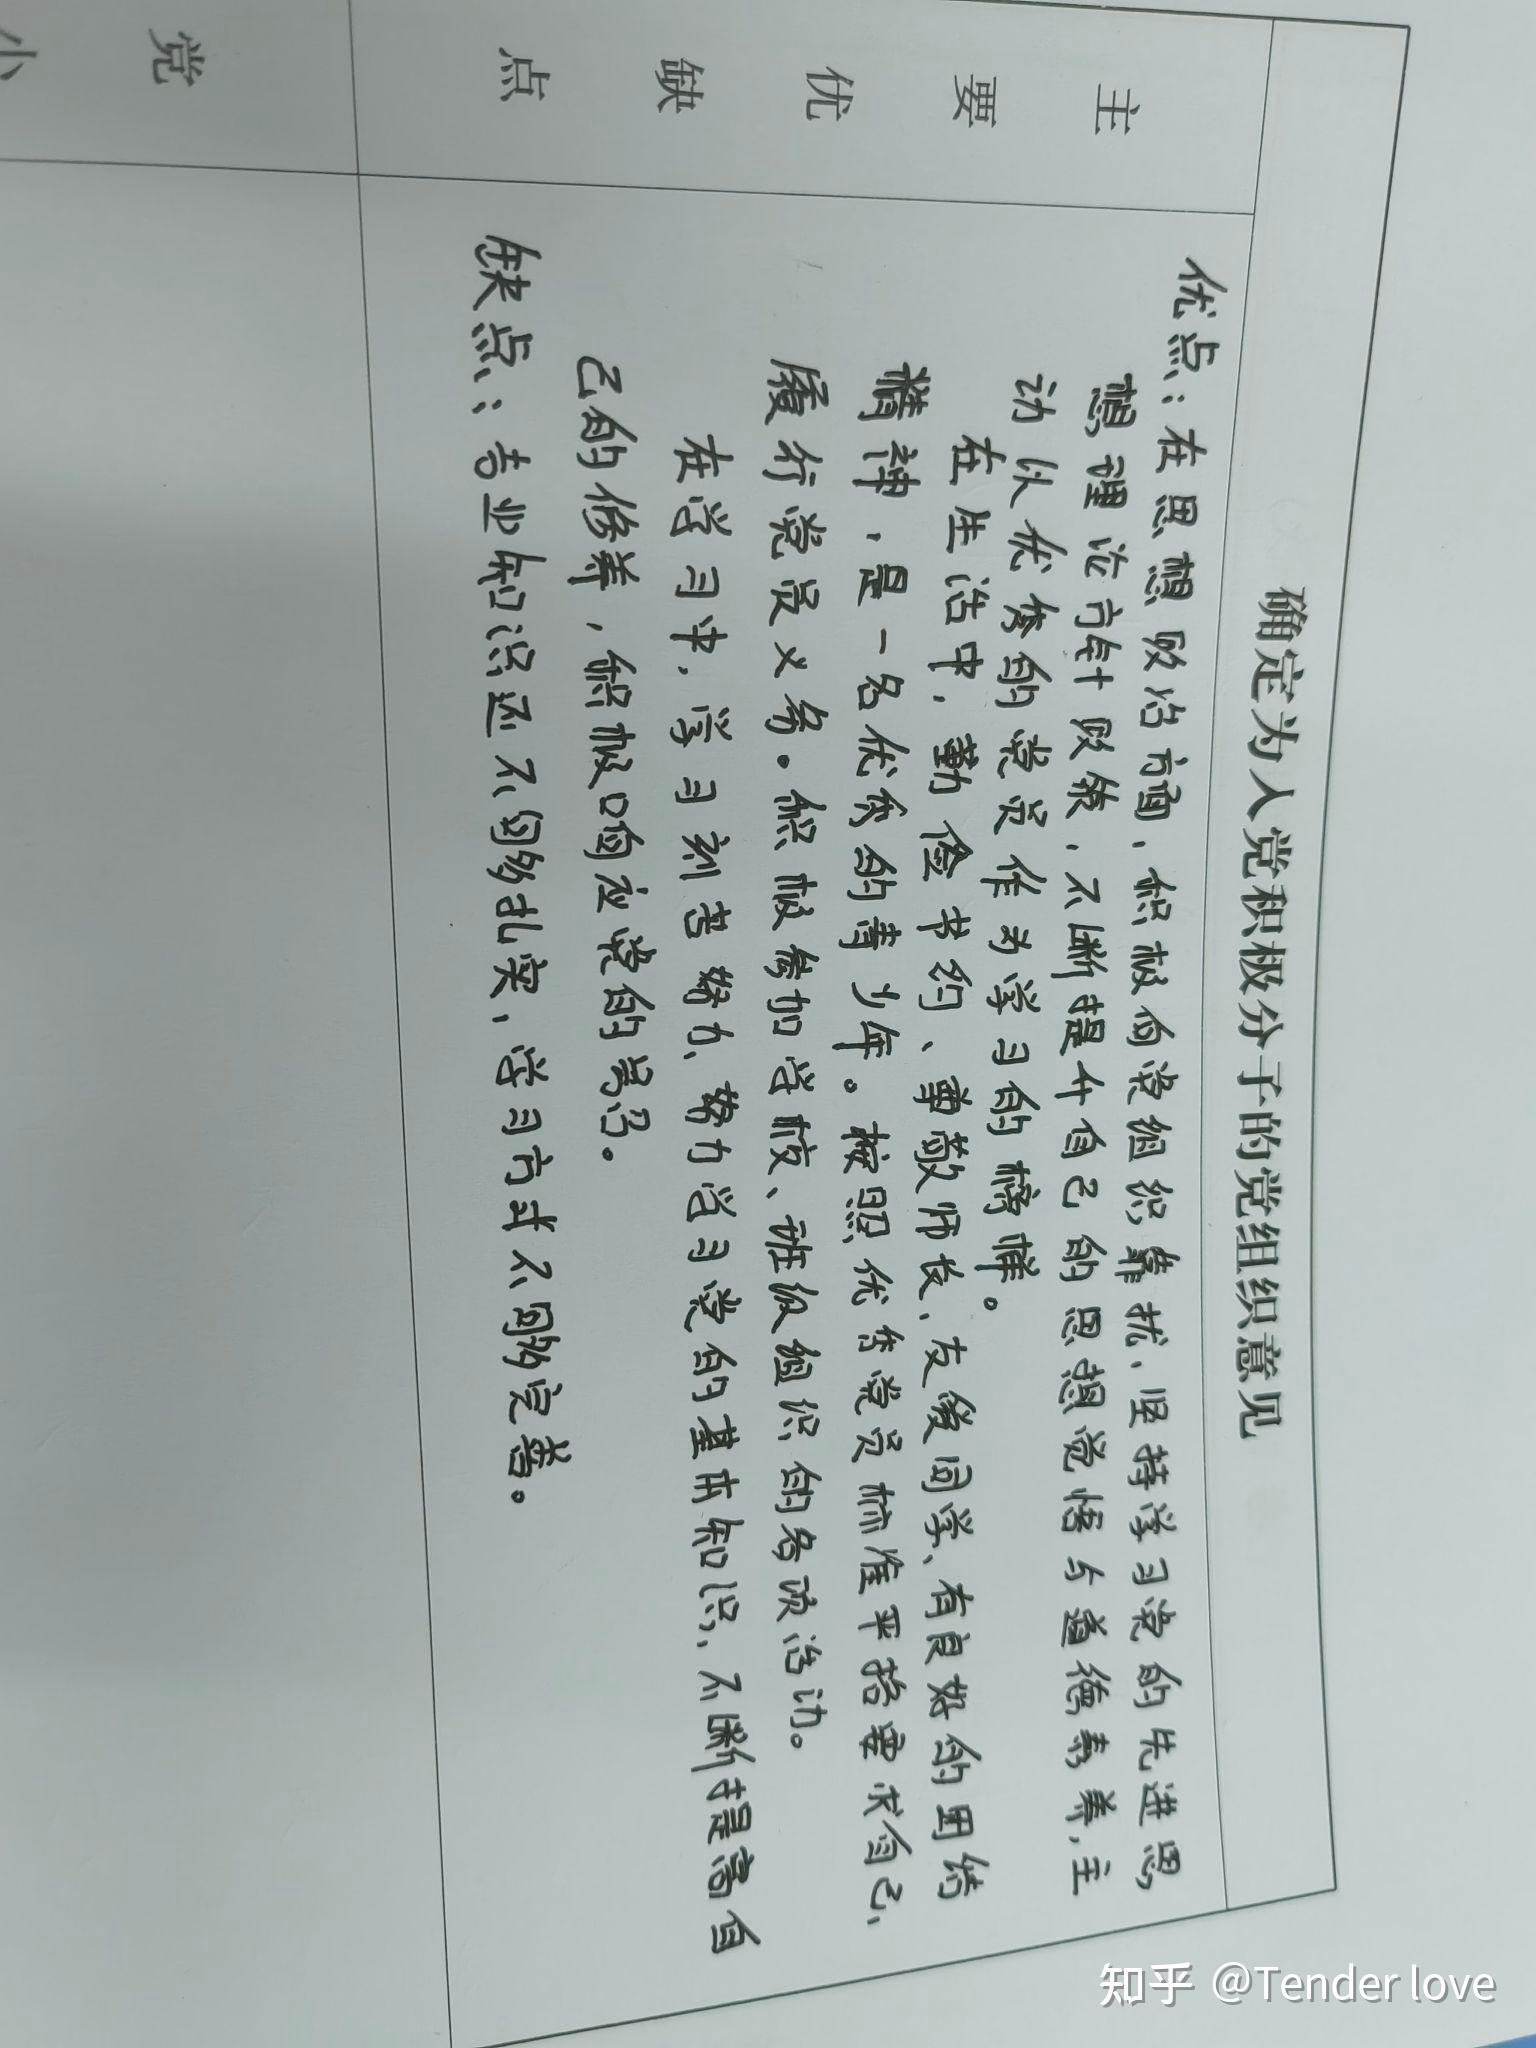 确定为入党积极分子的党组织意见
主要优缺点
优点：在思想政治方面，积极向党组织靠拢，坚持学习党的先进思
想理论方针政策，不断提升自己的思想觉悟与道德素养，主
动以优秀的党员作为学习的榜样。
在生活中，勤俭节约、尊敬师长，友爱同学、有良好的团结
精神，是一名优秀的青少年。按照优秀党员标准严格要求自己，
履行党员义务。积极参加学校、班级组织的各项活动。
在学习中，学习刻苦努力、努力学习党的基本知识，不断提高自
己的修养，积极响应党的号召。
缺点：专业知识还不够扎实，学习方式不够完善。
党小
知乎 @Tender love